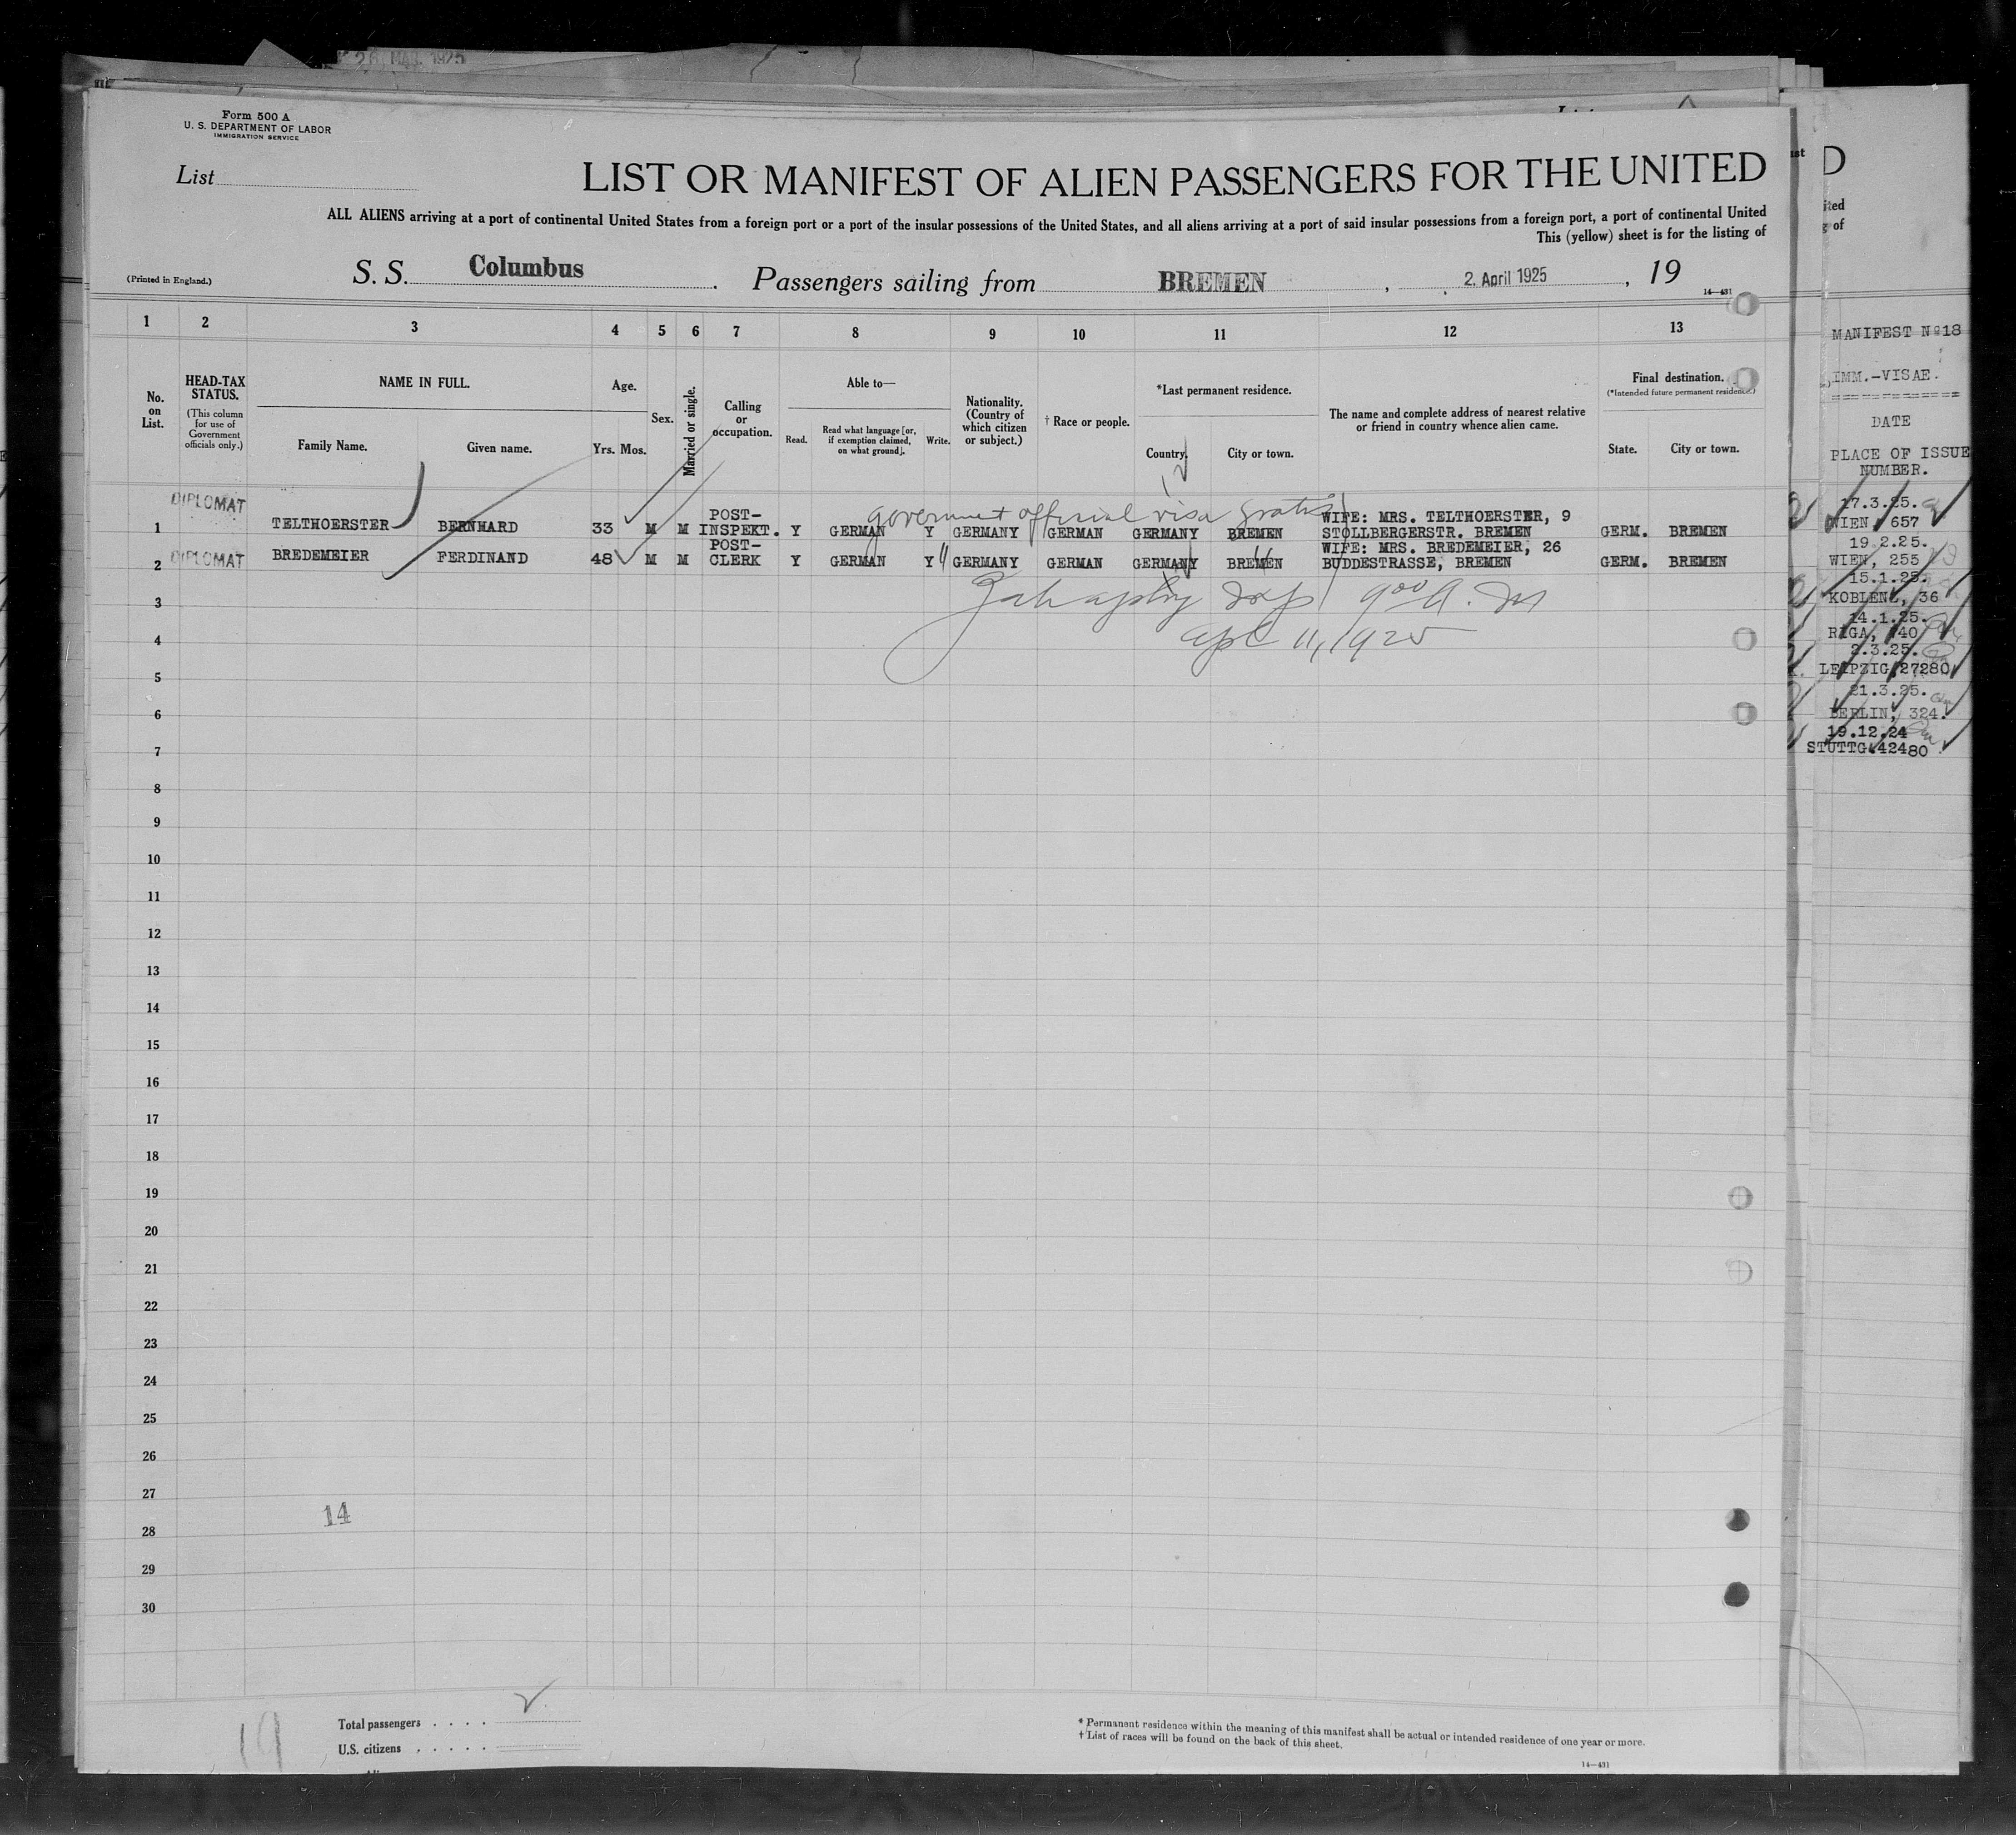 26 MAR 1925
Form 500 A
U. S. DEPARTMENT OF LABOR
IMMIGRATION SERVICE
List
LIST OR MANIFEST OF ALIEN PASSENGERS FOR THE UNITED
ALL ALIENS arriving at a port of continental United States from a foreign port or a port of the insular possessions of the United States, and all aliens arriving at a port of said insular possessions from a foreign port, a port of continental United
This (yellow) sheet is for the listing of
(Printed in England.)
S. S. Columbus. Passengers sailing from BREMEN, 2. April 1925, 19
14—431
1 2 3 4 5 6 7 8 9 10 11 12 13
No. on List.
HEAD-TAX STATUS.
(This column for use of Government officials only.)
NAME IN FULL.
Family Name. Given name.
Age.
Yrs. Mos.
Sex.
Married or single.
Calling or occupation.
Able to—
Read.
Read what language [or, if exemption claimed, on what ground].
Write.
Nationality. (Country of which citizen or subject.)
† Race or people.
*Last permanent residence.
Country. City or town.
The name and complete address of nearest relative or friend in country whence alien came.
Final destination.
(*Intended future permanent residence.)
State. City or town.
government official visa gratis
1 DIPLOMAT TELTHOERSTER BERNHARD 33 M M POST-INSPEKT. Y GERMAN Y GERMANY GERMAN GERMANY BREMEN WIFE: MRS. TELTHOERSTER, 9 STOLLBERGERSTR. BREMEN GERM. BREMEN
2 DIPLOMAT BREDEMEIER FERDINAND 48 M M POST-CLERK Y GERMAN Y " GERMANY GERMAN GERMANY BREMEN WIFE: MRS. BREDEMEIER, 26 BUDDESTRASSE, BREMEN GERM. BREMEN
9 00 A. M
3
11, 1925
4
5
6
7
8
9
10
11
12
13
14
15
16
17
18
19
20
21
22
23
24
25
26
27
14
28
29
30
19
Total passengers . . . .
U.S. citizens . . . . .
* Permanent residence within the meaning of this manifest shall be actual or intended residence of one year or more.
† List of races will be found on the back of this sheet.
14—431
D
ited
g of
MANIFEST Nº18
IMM.-VISAE.
=============
DATE
PLACE OF ISSUE
NUMBER.
17.3.25.
WIEN, 657
19.2.25.
WIEN, 255
15.1.25.
KOBLENZ, 36
14.1.25.
RIGA, 740
2.3.25.
LEIPZIG, 27280
21.3.25.
BERLIN, 324.
19.12.24
STUTTG. 42480